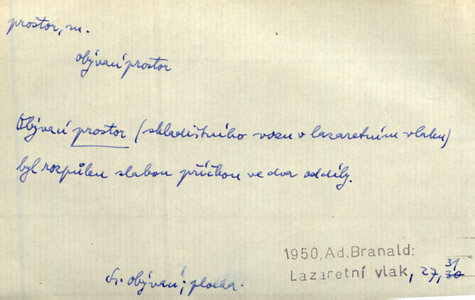 prostor, m.
obývací prostor
Obývací prostor (skladištního vozu v lazaretním vlaku)
byl rozpůlen slabou příčkou ve dva oddíly.
1950, Ad. Branald:
31
Lazaretní vlak, 27, 30
obývací; plocha.